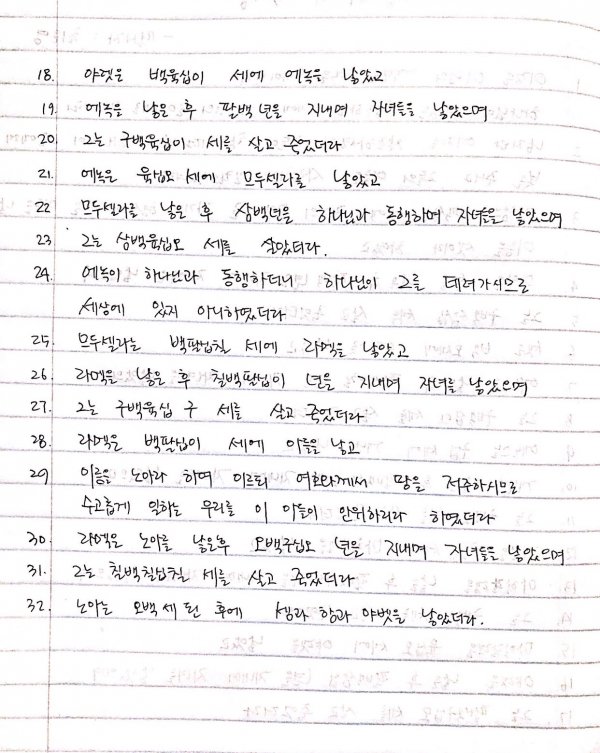 18. 야렛은 백육십이 세에 에녹을 낳았고
19. 에녹을 낳은 후 팔백 년을 지내며 자녀들을 낳았으며
20. 그는 구백육십이 세를 살고 죽었더라
21. 에녹은 육십오 세에 므두셀라를 낳았고
22. 므두셀라를 낳은 후 삼백년을 하나님과 동행하며 자녀들을 낳았으며
23. 그는 삼백육십오 세를 살았더라.
24. 에녹이 하나님과 동행하더니 하나님이 그를 데려가시므로
세상에 있지 아니하였더라
25. 므두셀라는 백팔십칠 세에 라멕을 낳았고
26. 라멕을 낳은 후 칠백팔십이 년을 지내며 자녀를 낳았으며
27. 그는 구백육십 구 세를 살고 죽었더라
28. 라멕은 백팔십이 세에 아들을 낳고
29 이름을 노아라 하여 이르되 여호와께서 땅을 저주하시므로
수고롭게 일하는 우리를 이 아들이 안위하리라 하였더라
30. 라멕은 노아를 낳은후 오백구십오 년을 지내며 자녀들을 낳았으며
31. 그는 칠백칠십칠 세를 살고 죽었더라
32. 노아는 오백 세 된 후에 셈과 함과 야벳을 낳았더라.